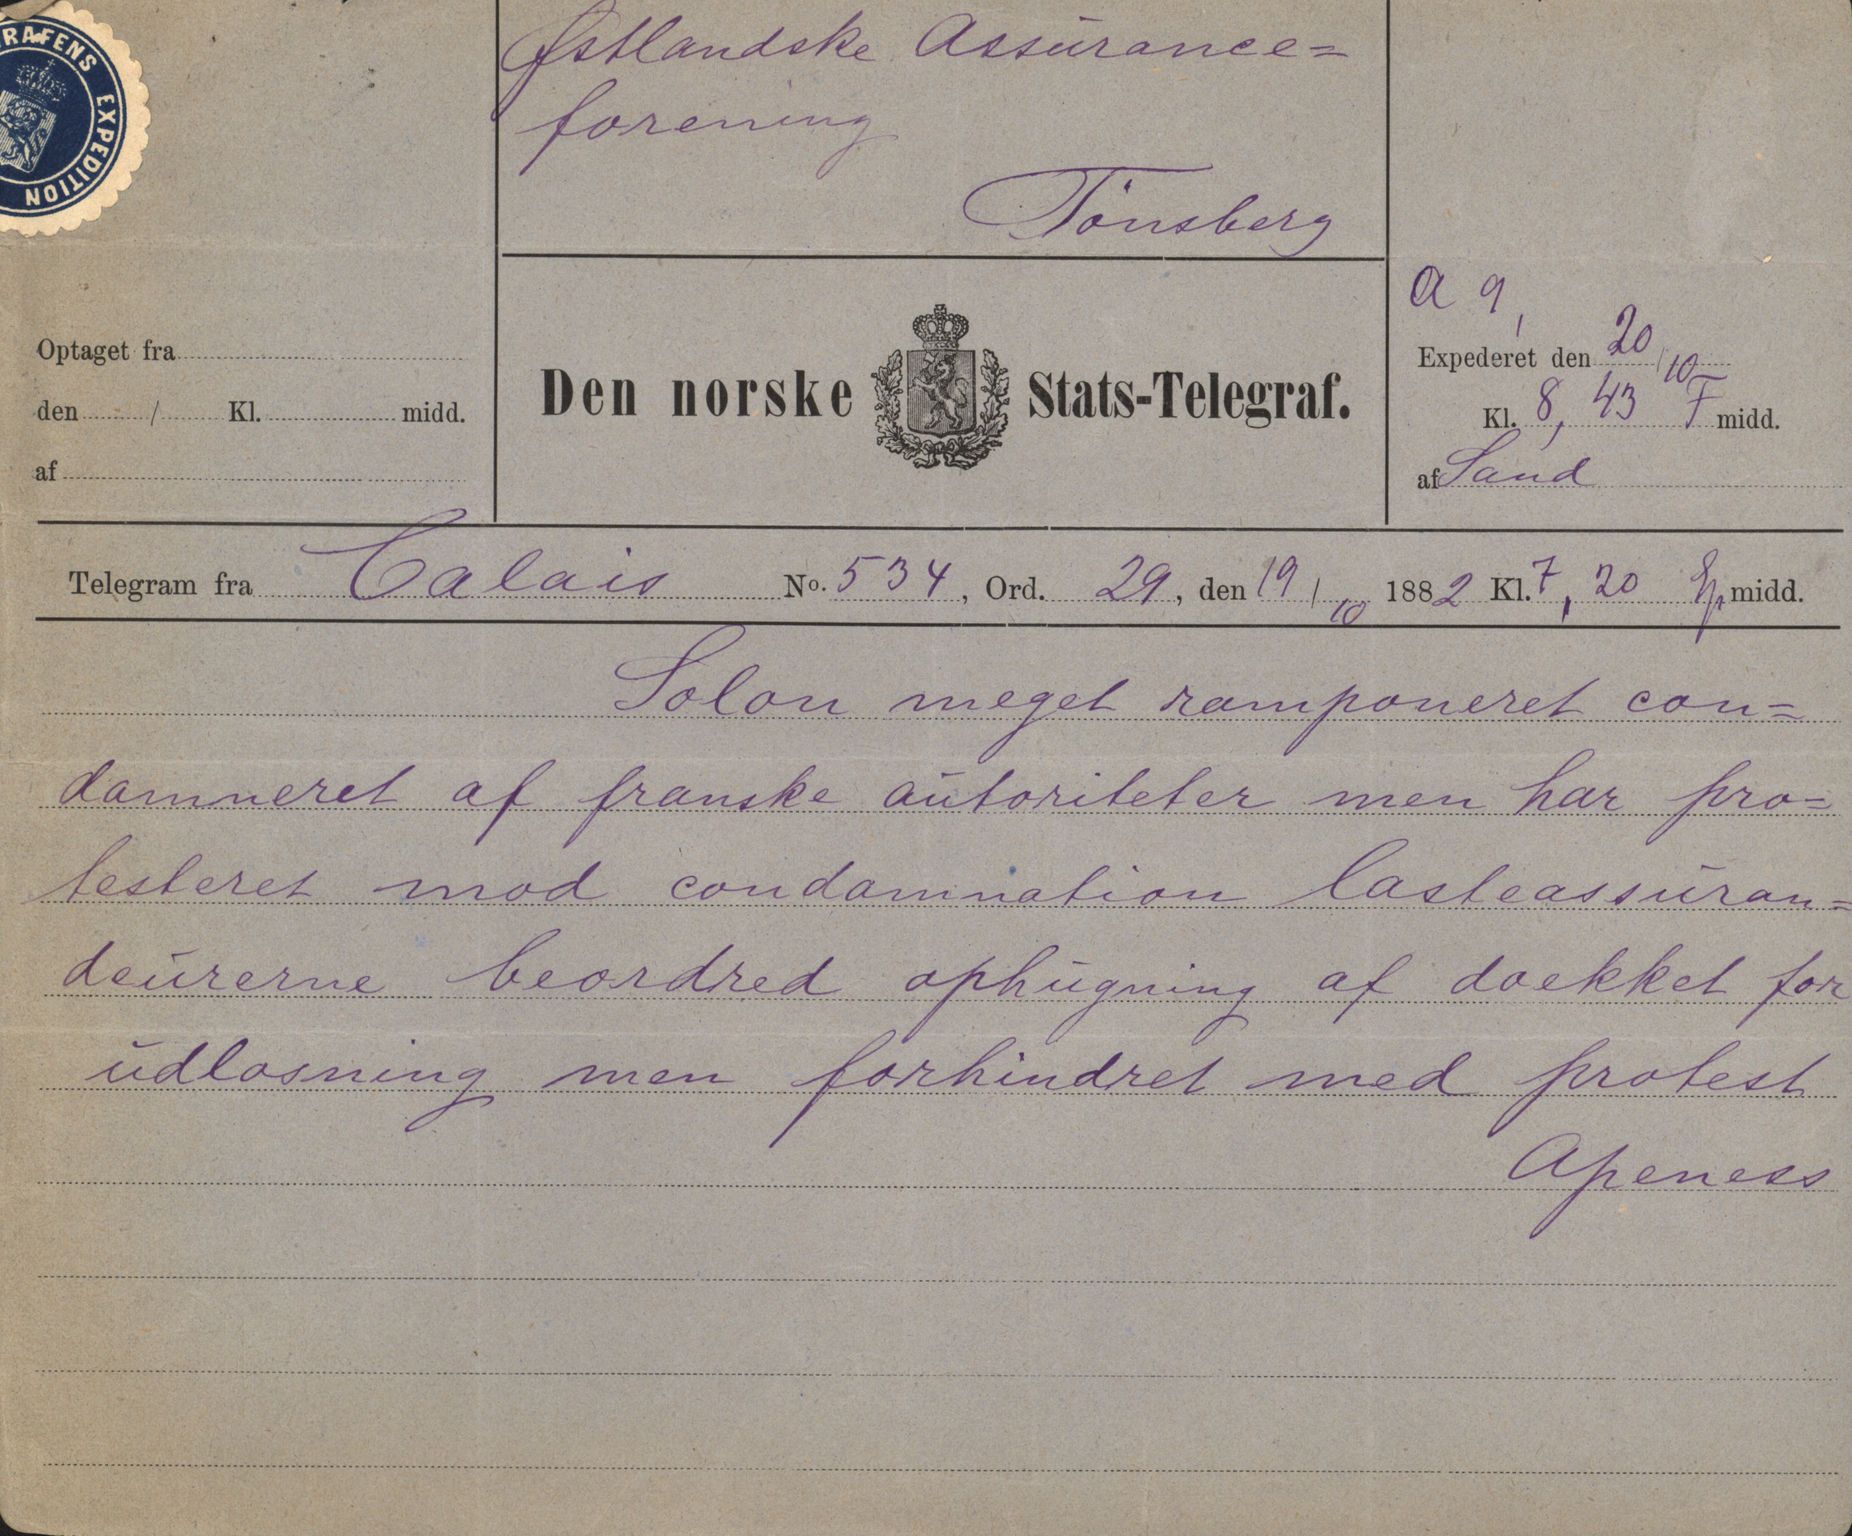 RAFENS EXPEDITION
Østlandske Assurance=
forening
Tönsberg
Optaget fra
den / Kl. midd.
af
Den norske Stats-Telegraf.
a 9,
Expederet den 20/10
Kl. 8,43 F midd.
af Sand
Telegram fra Calais No. 534, Ord. 29, den 19/10 1882 Kl. 7,20 Ep midd.
Solon meget ramponeret con=
damneret af franske autoriteter men har pro=
testeret mod condamnation lasteassuran=
deurerne beordred ophugning af doekket for
udlosning men forhindret med protest
Apeness